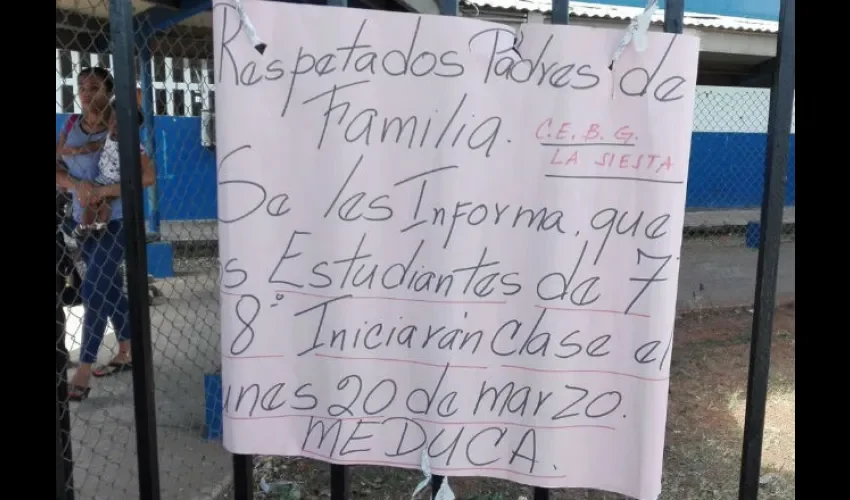 Respetados Padres de
Familia.
C.E.B.G.
LA SIESTA
Se les Informa, que
s Estudiantes de 7°
8° Iniciarán Clase el
unes 20 de marzo.
MEDUCA.